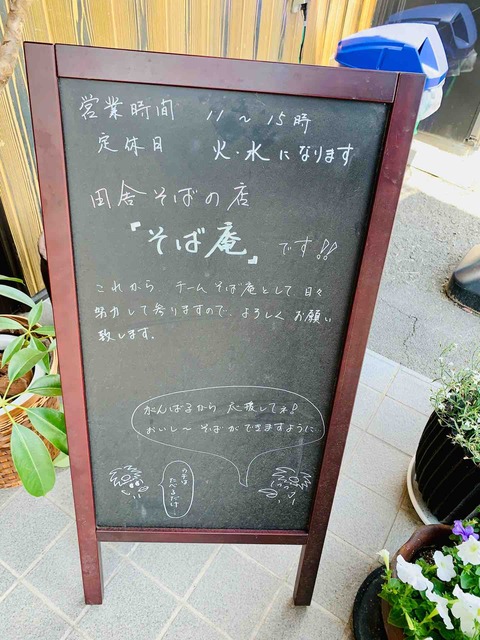 営業時間 11～15時
定休日 火・水になります
田舎そばの店
『そば庵』です!!
これから チームそば庵として 日々
努力して参りますので よろしく お願い
致します。
がんばるから 応援してネ!
おいし～ そばができますように
たべるだけ